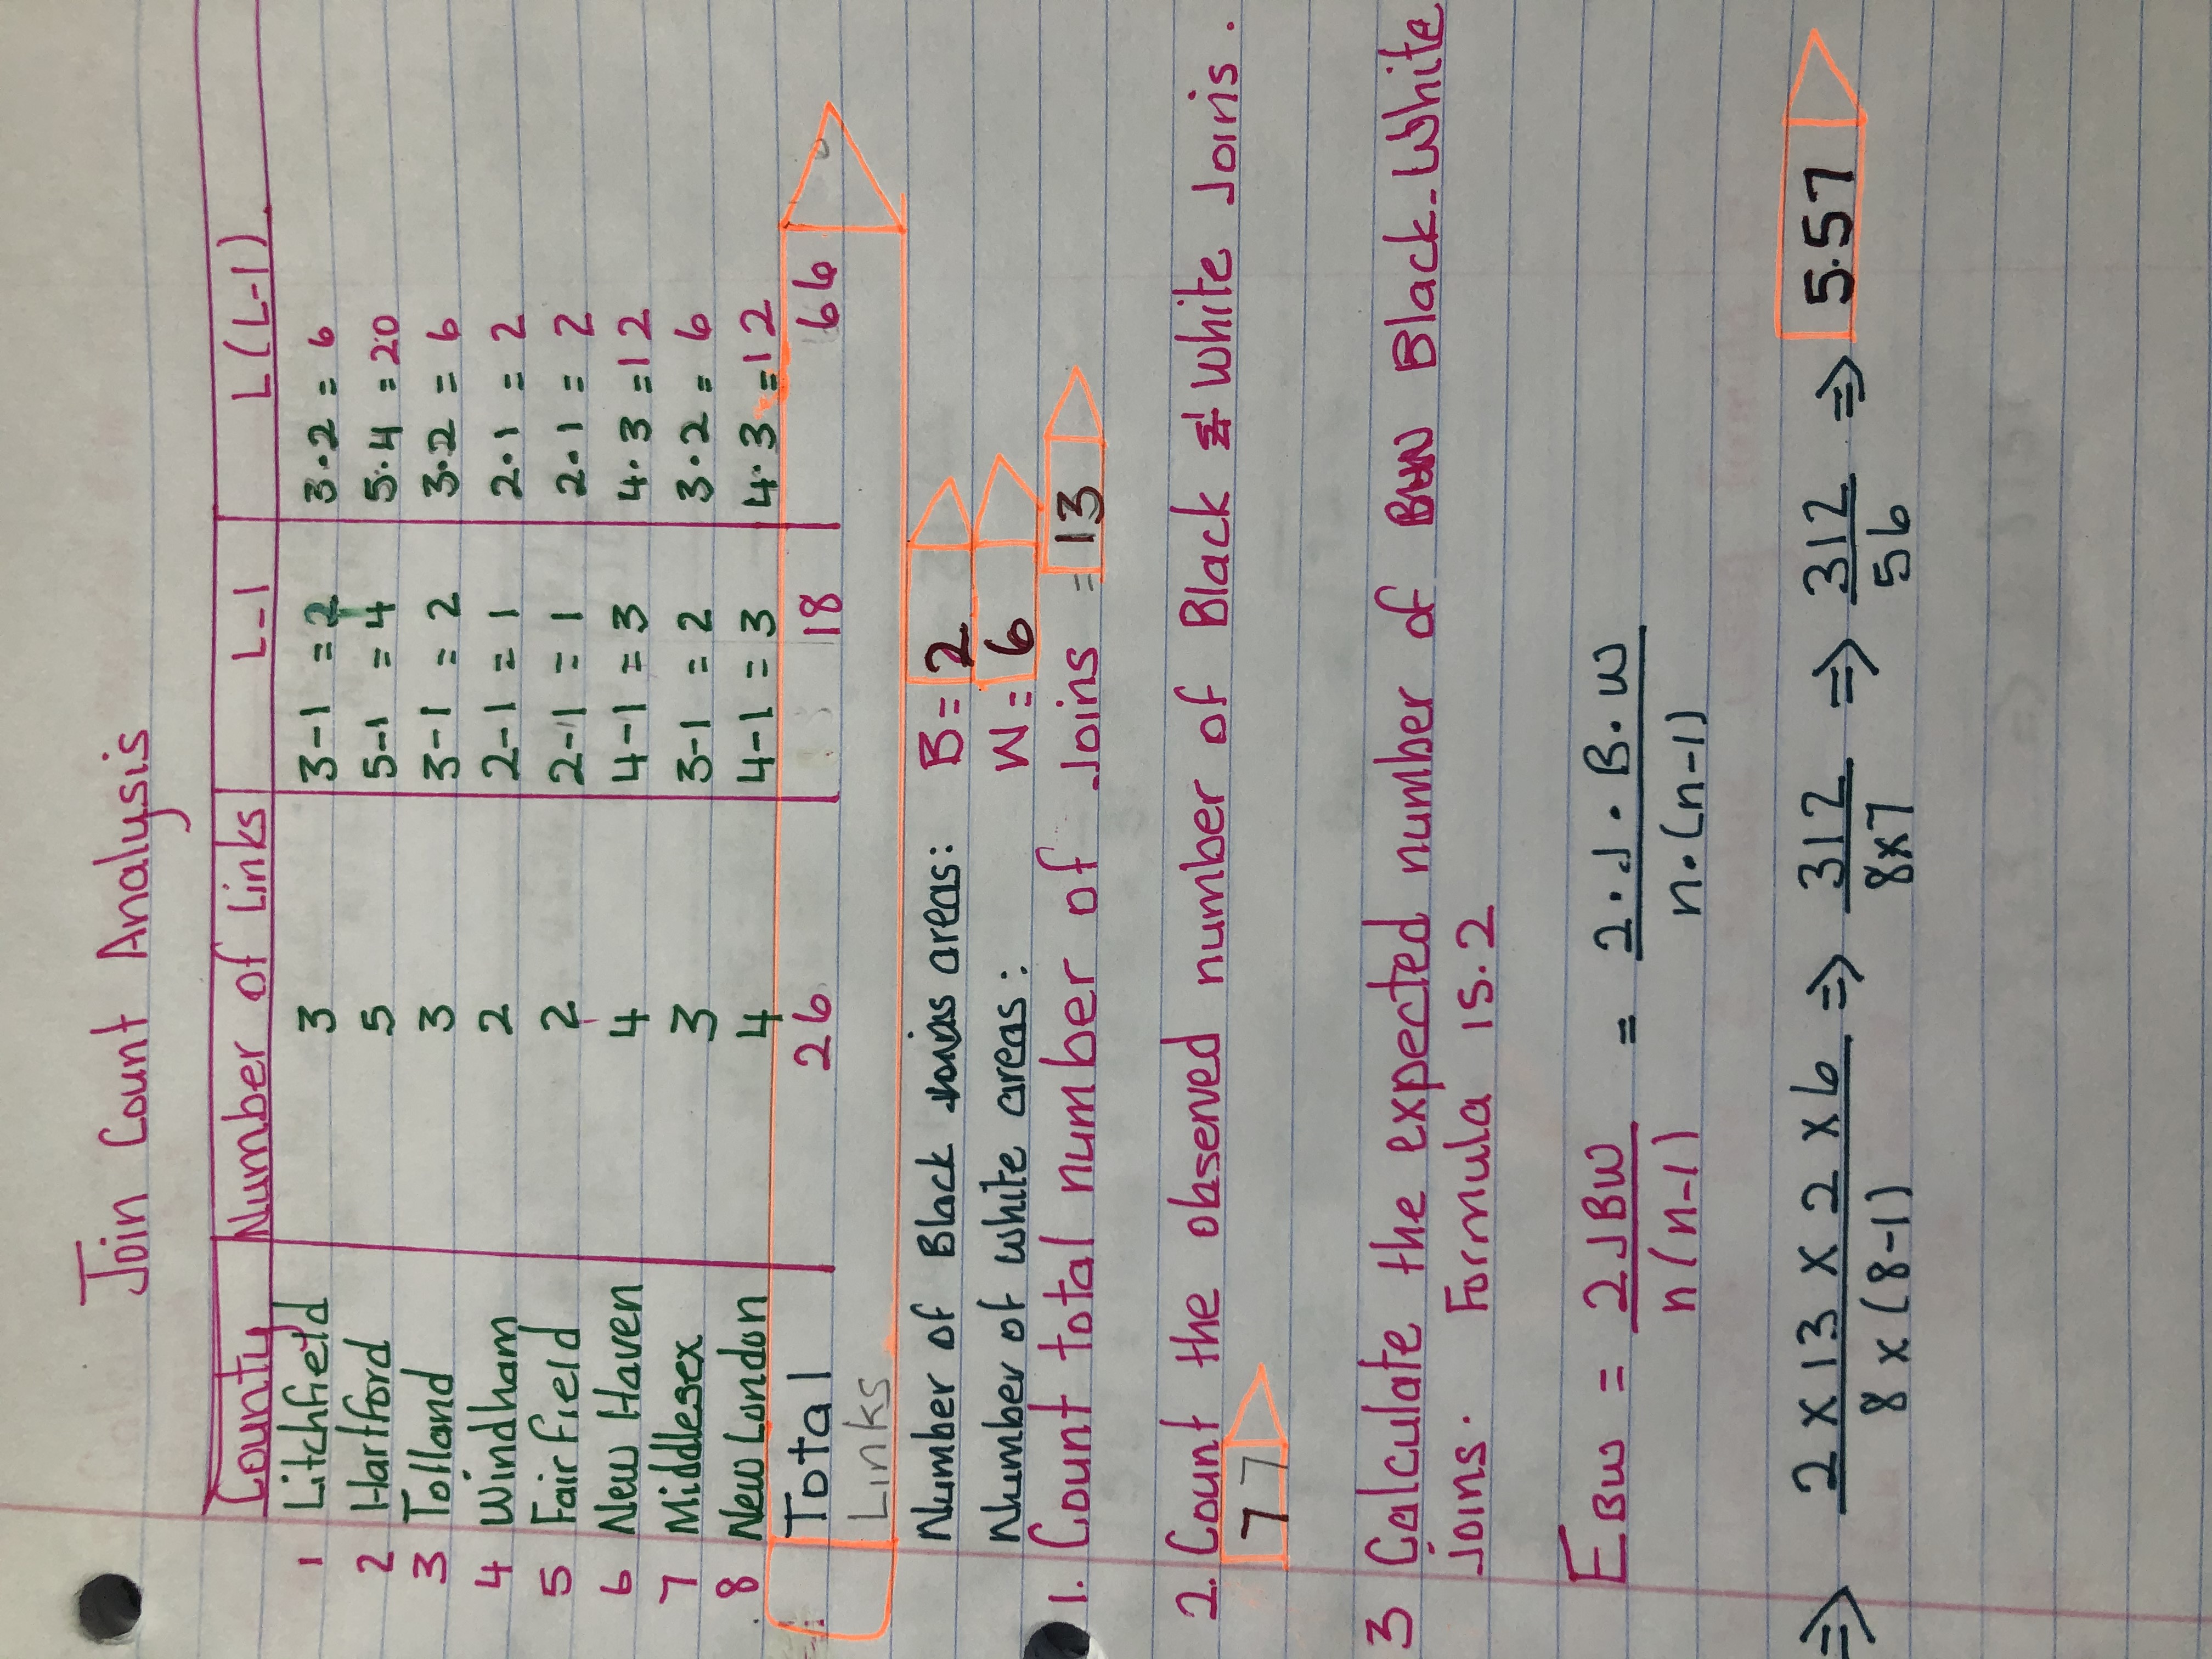 Join Count Analysis
County Number of Links L-1 L(L-1)
1 Litchfield 3 3-1 = 2 3·2 = 6
2 Hartford 5 5-1 = 4 5·4 = 20
3 Tolland 3 3-1 = 2 3·2 = 6
4 Windham 2 2-1 = 1 2·1 = 2
5 Fairfield 2 2-1 = 1 2·1 = 2
6 New Haven 4 4-1 = 3 4·3 = 12
7 Middlesex 3 3-1 = 2 3·2 = 6
8 New London 4 4-1 = 3 4·3 = 12
Total 26 18 66
Links
Number of Black areas: B = 2
Number of white areas: W = 6
1. Count total number of Joins = 13
2. Count the observed number of Black & White Joins.
7 7
3 Calculate the expected number of Black-White
joins. Formula 15.2
EBW = 2JBW / n(n-1) = 2·J·B·W / n·(n-1)
⇒ 2 x 13 x 2 x 6 / 8 x (8-1) ⇒ 312 / 8x7 ⇒ 312 / 56 ⇒ 5.57